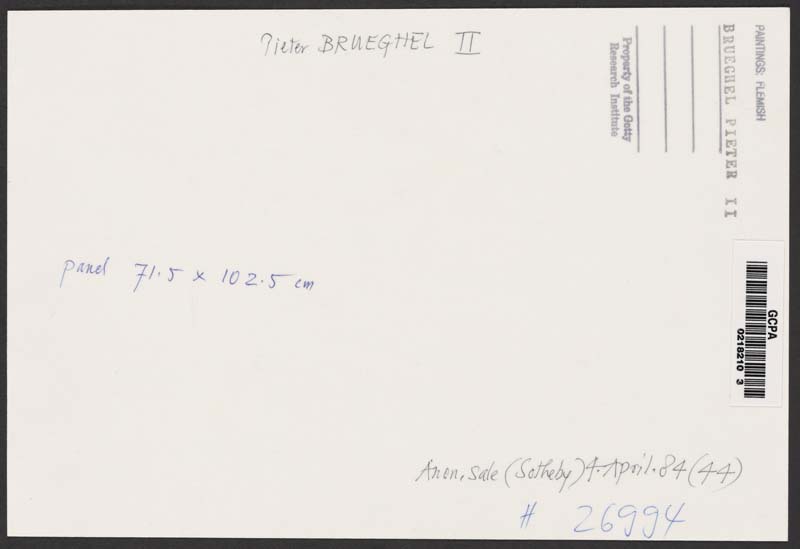 Pieter BRUEGHEL II
PAINTINGS: FLEMISH
BRUEGHEL PIETER II
Property of the Getty
Research Institute
panel 71.5 x 102.5 cm
GCPA
0218210 3
Anon. sale (Sotheby) 4. April. 84 (44)
# 26994